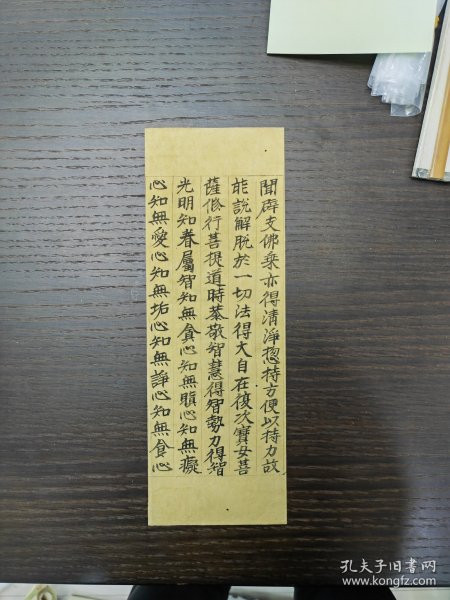 聞辟支佛乘亦得清淨惣持方便以持力故
能說解脫於一切法得大自在復次寶女菩
薩修行菩提道時恭敬智慧得智勢力得智
光明知眷屬智知無貪心知無瞋心知無癡
心知無愛心知無垢心知無諍心知無貪心
孔夫子旧书网
www.kongfz.com